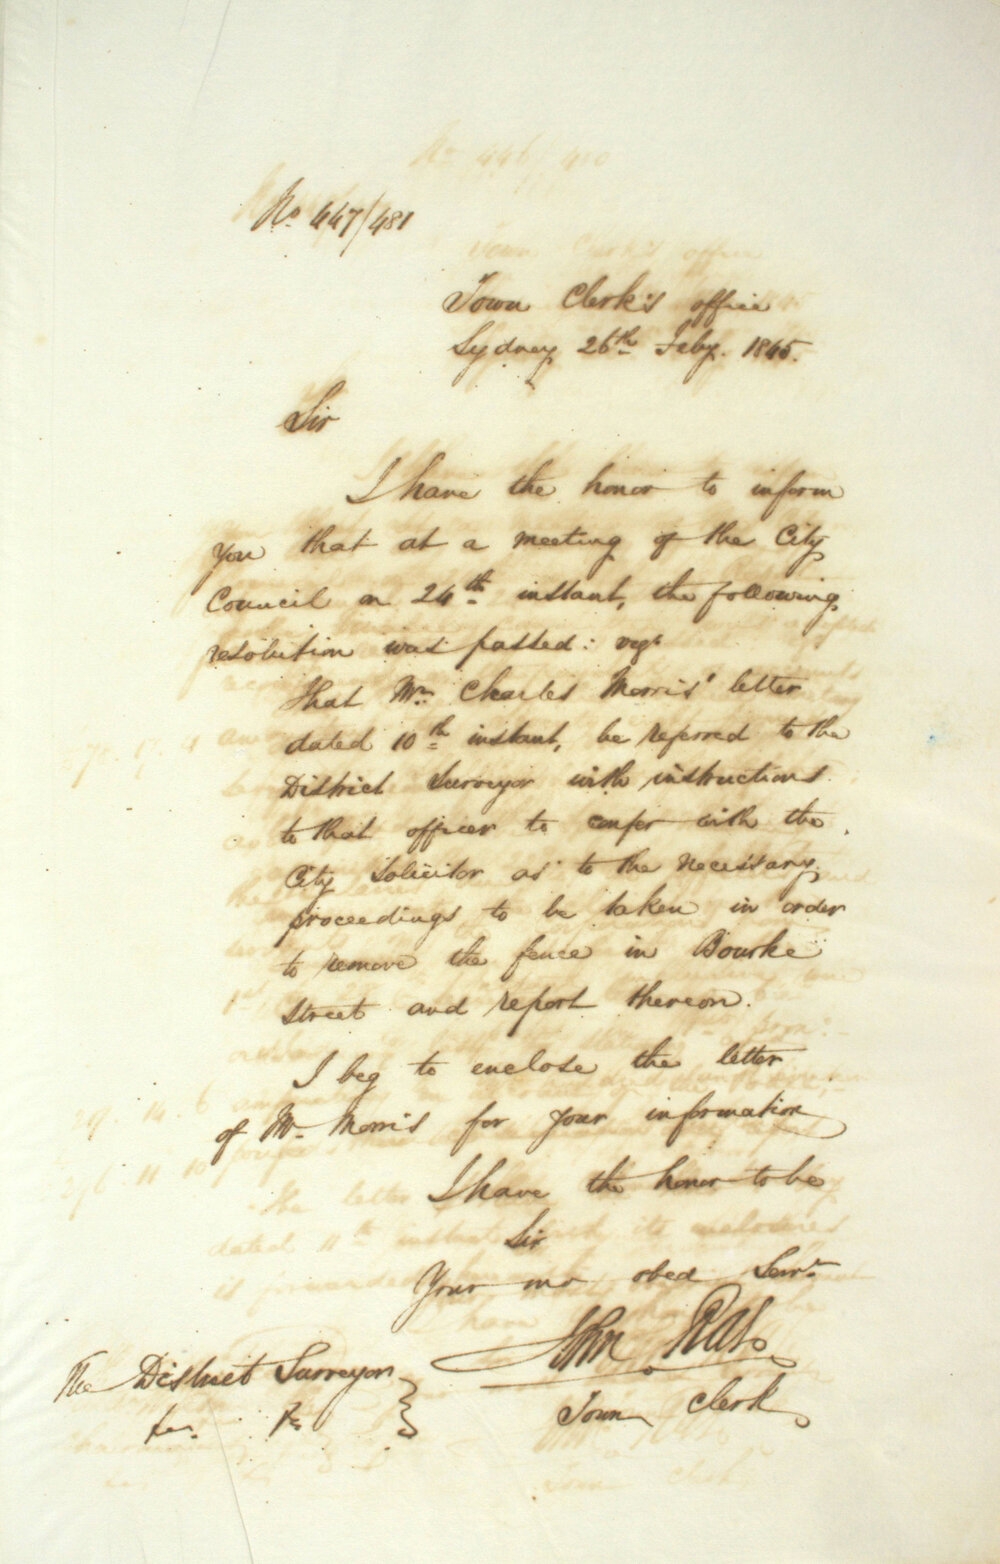 No 447/481
Town Clerk's office
Sydney 26th Feby. 1845.
Sir
I have the honor to inform
you that at a meeting of the City
Council on 24th instant, the following
resolution was passed: vizt
that Mr Charles Morris' letter
dated 10th instant, be referred to the
District Surveyor with instructions
to that officer to confer with the
City Solicitor as to the necessary
proceedings to be taken in order
to remove the fence in Bourke
Street and report thereon.
I beg to enclose the letter
of Mr Morris for your information
I have the honor to be
Sir
Your mo obed Servt
John Rae
Town Clerk
The District Surveyor
&c. &c